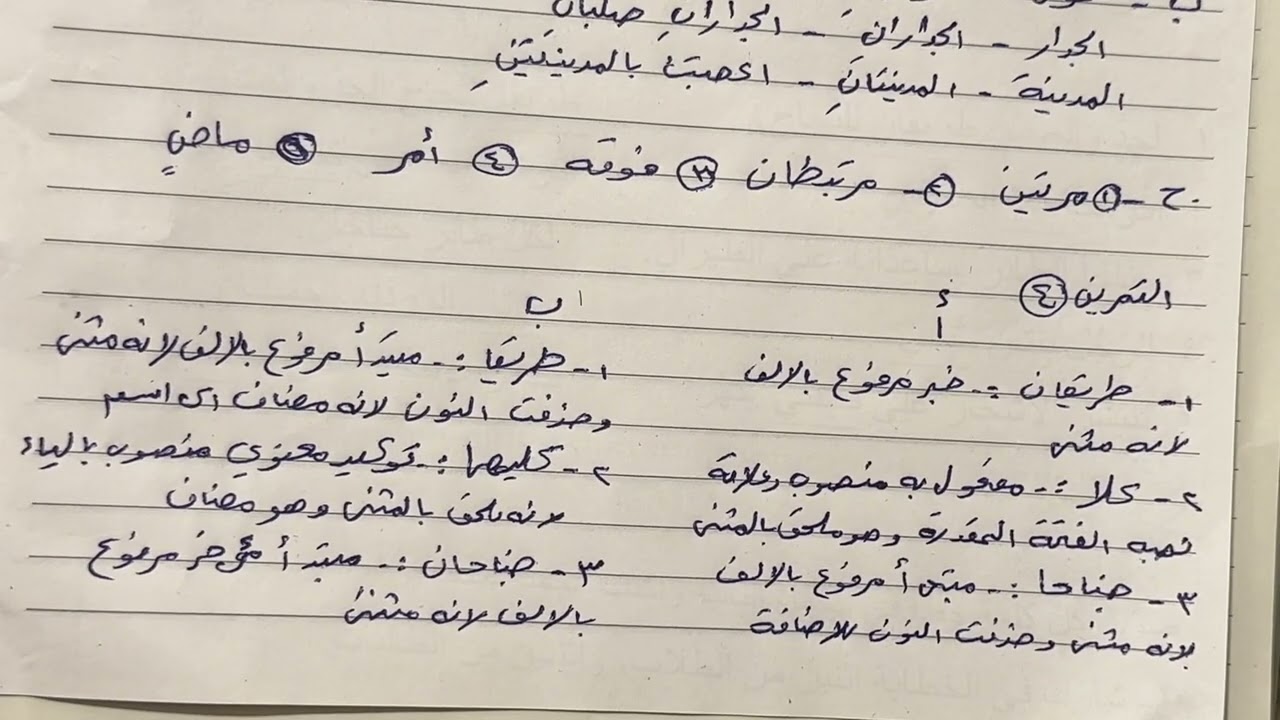 الجدار - الجداران - الجداران صلبان
المدينة - المدينتان - اعجبت بالمدينتينِ
ح - ١ مرتين ٢ - مرتبطان ٣ فوقه ٤ أمر ٥ ماضٍ
التمرين ٤
أ ب
١- طريقان :. خبر مرفوع بالالف
لانه مثنى
٢- كلا :. مفعول به منصوب وعلامة
نصبه الفتحة المقدرة وهو ملحق بالمثنى
٣- جناحا :. مبتدأ مرفوع بالالف
لانه مثنى وحذفت النون للاضافة
١- طريقا :. مبتدأ مرفوع بالالف لانه مثنى
وحذفت النون لانه مضاف الى اسم
٢- كليهما :. توكيد معنوي منصوب بالياء
لانه ملحق بالمثنى وهو مضاف
٣- جناحان :. مبتدأ مؤخر مرفوع
بالالف لانه مثنى